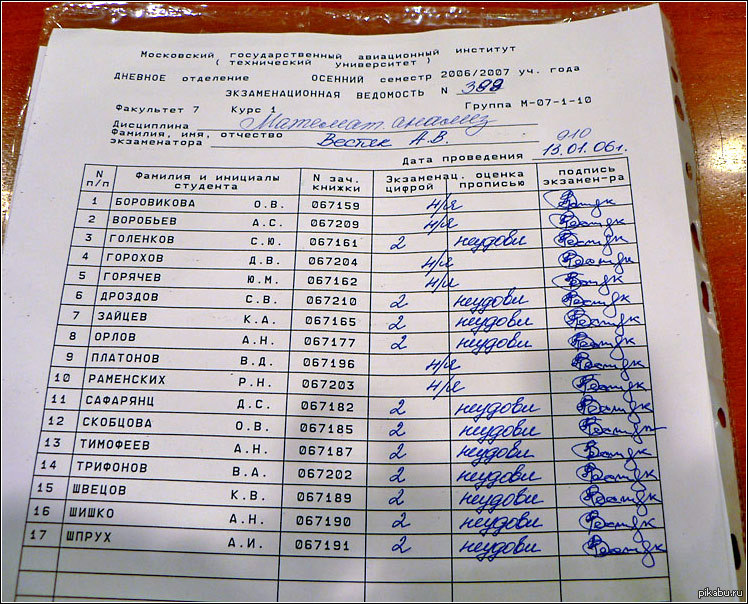 Московский государственный авиационный институт
( технический университет )
ДНЕВНОЕ отделение ОСЕННИЙ семестр 2006/2007 уч. года
ЭКЗАМЕНАЦИОННАЯ ВЕДОМОСТЬ N 388
Факультет 7 Курс 1 Группа М-07-1-10
Дисциплина Математ. анализ
Фамилия, имя, отчество
экзаменатора Вестяк А.В.
Дата проведения 13.01.06г.
N п/п Фамилия и инициалы студента N зач. книжки Экзаменац. оценка цифрой прописью подпись экзамен-ра
1 БОРОВИКОВА О.В. 067159 н/я Вестяк
2 ВОРОБЬЕВ А.С. 067209 н/я Вестяк
3 ГОЛЕНКОВ С.Ю. 067161 2 неудовл Вестяк
4 ГОРОХОВ Д.В. 067204 н/я Вестяк
5 ГОРЯЧЕВ Ю.М. 067162 н/я Вестяк
6 ДРОЗДОВ С.В. 067210 2 неудовл Вестяк
7 ЗАЙЦЕВ К.А. 067165 2 неудовл Вестяк
8 ОРЛОВ А.Н. 067177 2 неудовл Вестяк
9 ПЛАТОНОВ В.Д. 067196 н/я Вестяк
10 РАМЕНСКИХ Р.Н. 067203 н/я Вестяк
11 САФАРЯНЦ Д.С. 067182 2 неудовл Вестяк
12 СКОБЦОВА О.В. 067185 2 неудовл Вестяк
13 ТИМОФЕЕВ А.Н. 067187 2 неудовл Вестяк
14 ТРИФОНОВ В.А. 067202 2 неудовл Вестяк
15 ШВЕЦОВ К.В. 067189 2 неудовл Вестяк
16 ШИШКО А.Н. 067190 2 неудовл Вестяк
17 ШПРУХ А.И. 067191 2 неудовл Вестяк
pikabu.ru